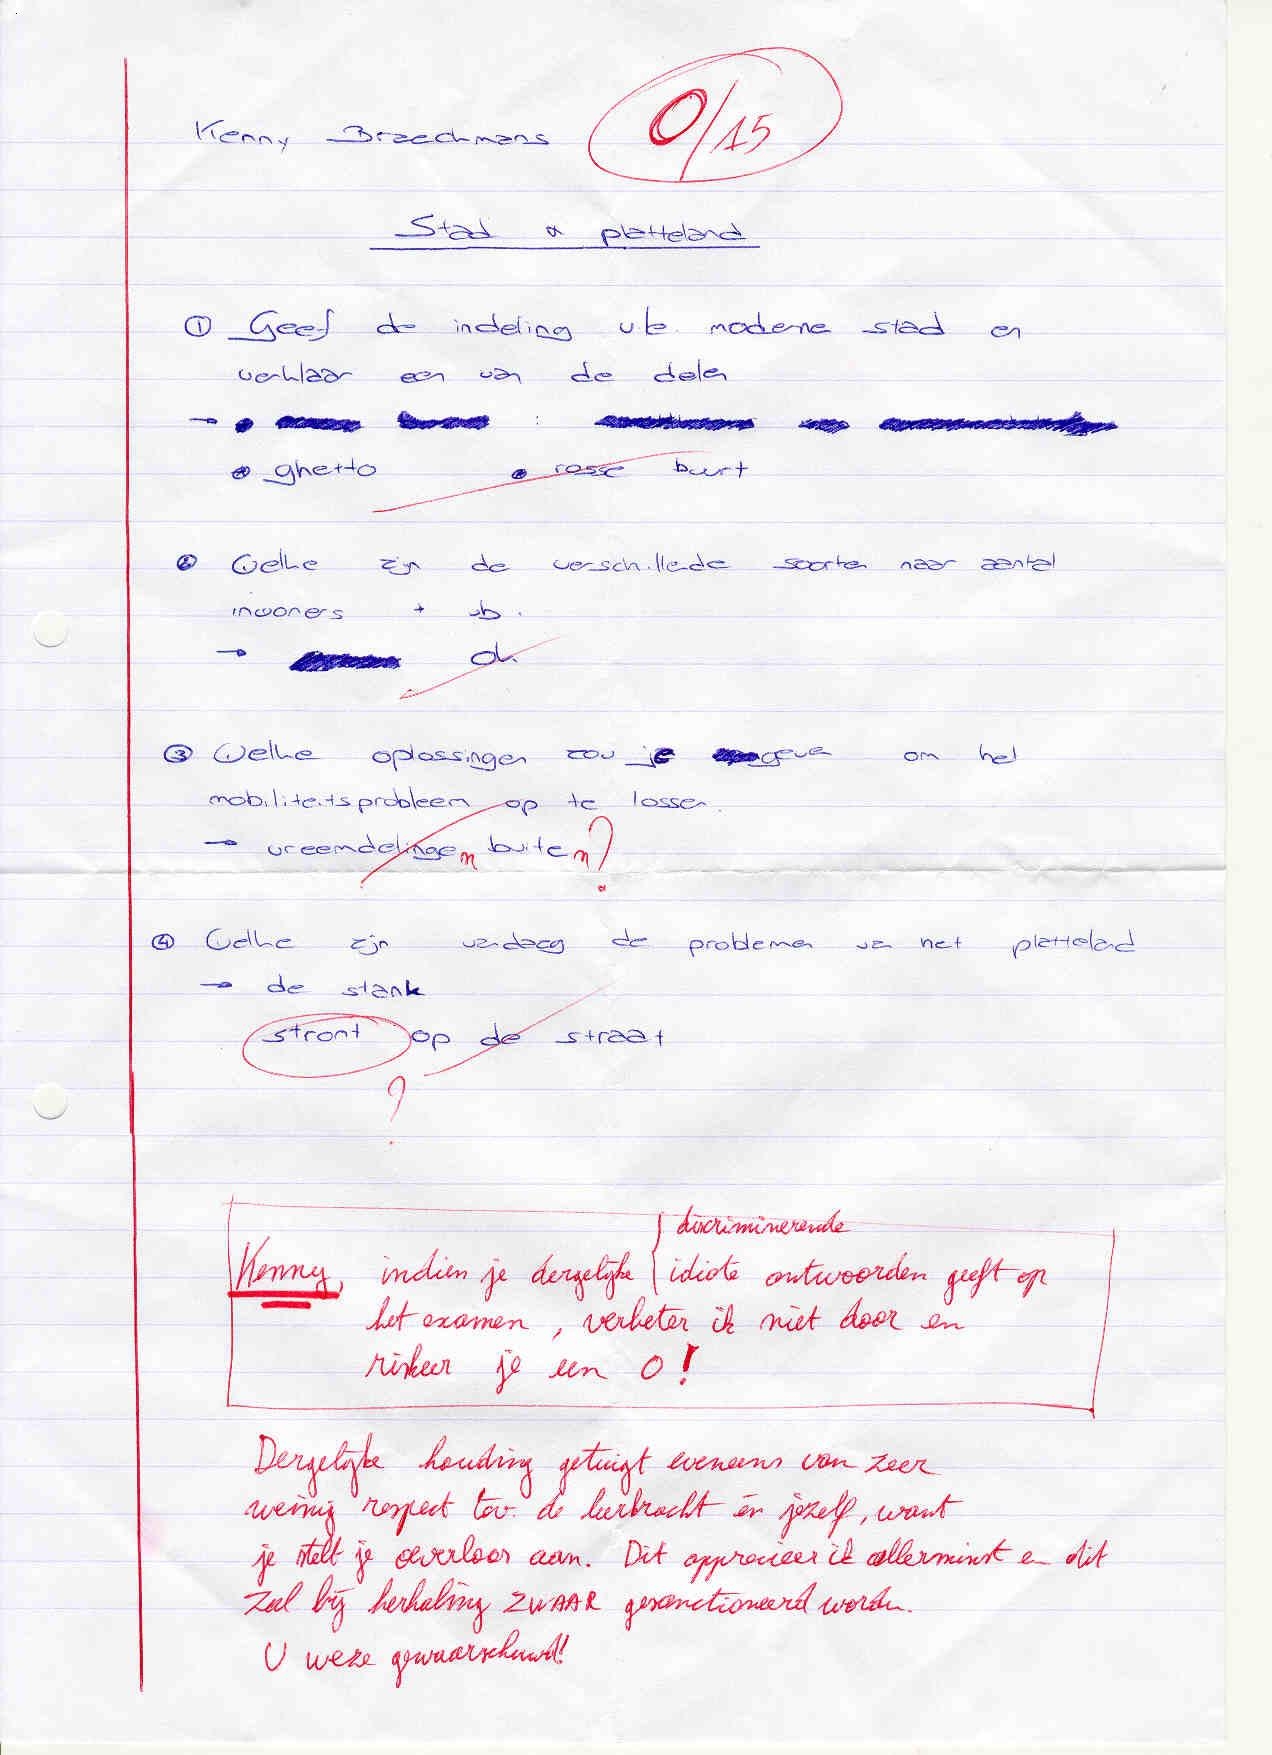 Kenny Braeckmans
0/15
Stad & platteland
① Geef de indeling v/e moderne stad en
verklaar een van de delen
→ • :
• ghetto • rosse buurt
② Welke zijn de verschillede soorten naar aantal
inwoners + vb.
→ ok
③ Welke oplossingen zou je geven om het
mobiliteitsprobleem op te lossen.
→ vreemdelingen buiten?
④ Welke zijn vandaag de problemen van het platteland
→ de stank
stront op de straat
?
discriminerende
Kenny, indien je dergelijke { idiote antwoorden geeft op
het examen, verbeter ik niet door en
riskeer je een 0!
Dergelijke houding getuigt eveneens van zeer
weinig respect tov. de leerkracht én jezelf, want
je stelt je aan. Dit apprecieer ik allerminst en dit
zal bij herhaling ZWAAR gesanctioneerd worden.
U weze gewaarschuwd!